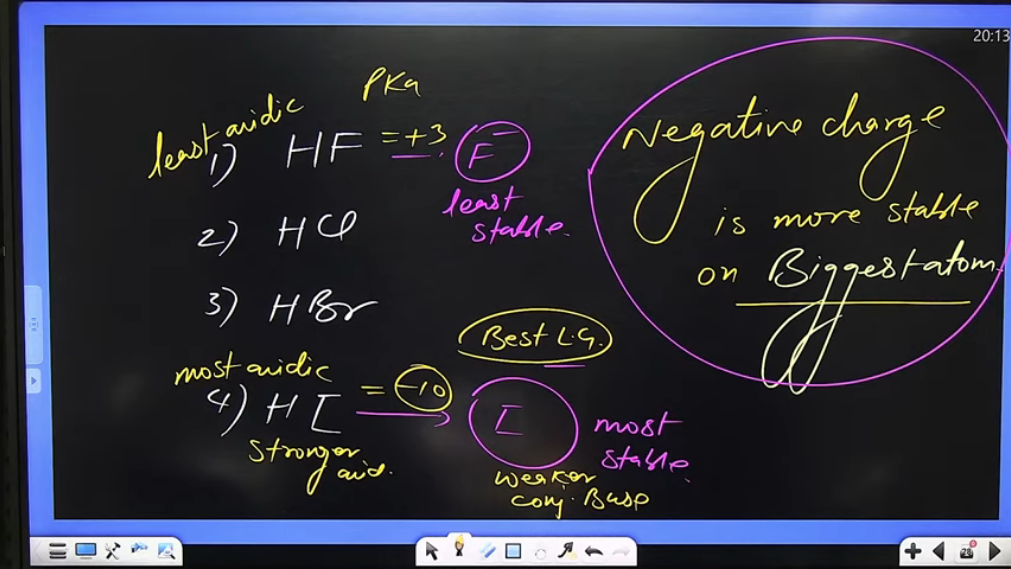 20:13
PKa
least acidic
1) HF = +3 F⁻
least
stable.
2) HCl
3) HBr
Best L.G.
most acidic
4) HI = -10 I
most
stable.
Stronger
acid.
weaker
conj. Base
Negative charge
is more stable
on Biggest atom.
28